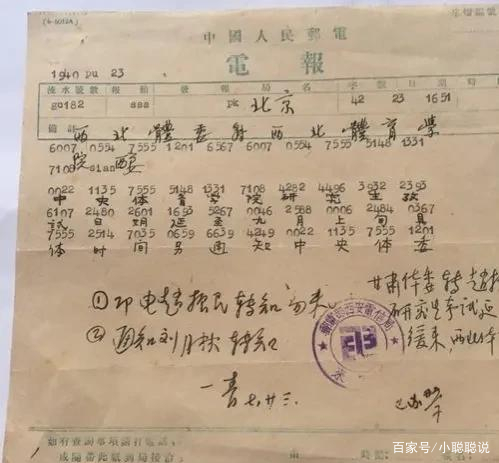 (4-5012A)
中國人民郵電
電報
1940 PU 23
流水號數 報類 發報局名 字數 日期 時間
gu182 sss pk 北京 42 23 1651
備註
西北體委轉西北體育學
6007 0554 7555 1201 6567 6007 0554 7555 5148 1331
院 西安
7108 sian
0022 1135 7555 5148 1331 7108 4282 4496 3932 2393
中央体育学院研究生攷
6107 2480 2601 1693 5267 0046 2588 0006 2484 0367
試日期延至九月上旬具
7555 2514 7035 0659 6639 4249 0022 1135 7555 1201
体时间另通知中央体委
①即电赵振民转知勿来。
②通知刘月秋转知
七、廿三.
甘肃体委转赵振
研究生考试延
缓来,西北体
如有查詢事項請打電話
或開帶此紙到局接洽
百家号/小聪聪说